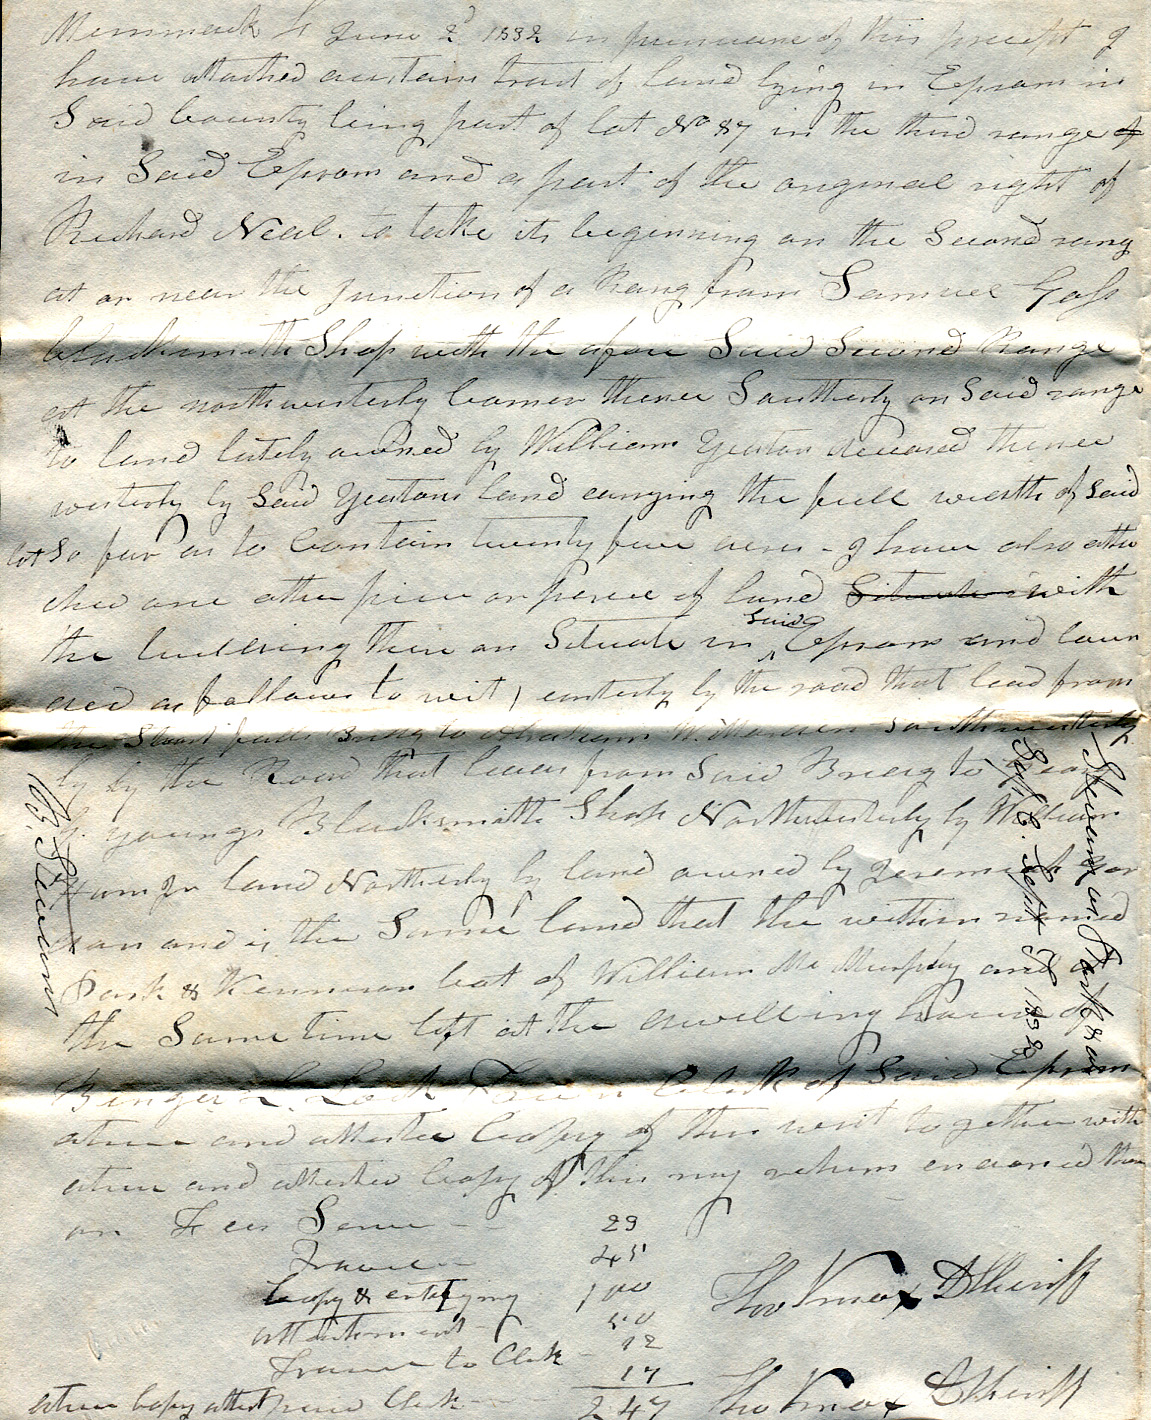 Merrimack Ss June 2d 1832 in pursuance of this precept I
have attached a certain tract of land lying in Epsom in
Said County being part of lot No 87 in the third range of
in Said Epsom and a part of the original right of
Richard Neal. to take its beginning on the Second rang
at or near the junction of a Rang from Samuel Gass
blacksmith Shop with the afore Said Second Range
at the northwesterly Corner thence Southerly on Said range
to land lately owned by William Yeaton deceased thence
westerly by Said Yeatons land carrying the full width of Said
lot So far as to Contain twenty five acres - I have also atta
ched one other piece or parcel of land Situate with
the buildings there on Situate in Said Epsom and boun
ded as follows to wit, easterly by the road that lead from
the Short falls Bridg to Southwesterly
by the Road that leads from Said Bridg to
youngs Blacksmith Shop Northwesterly by William
Ham Jr land Northerly by land owned by Jeremiah
and is the Same land that the within named
Park & Kennison bot of William Mc Murphy and at
the Same time left at the dwelling house of
L. Lock Town Clerk of Said Epsom
a true and attested Copy of this writ together with
a true and attested Copy of this my return endorsed there
on Fees Serve - 29
Travel - 45
Copy & certifying 1 00
attachment - 50
Travel to Clerk - 12
17
a true Copy attest paid Clerk - 2 47
Tho Knox D Sheriff
Tho Knox D Sheriff
B. Stevens
Stevens vs. Park & an
Sup. C. Sept T 1832